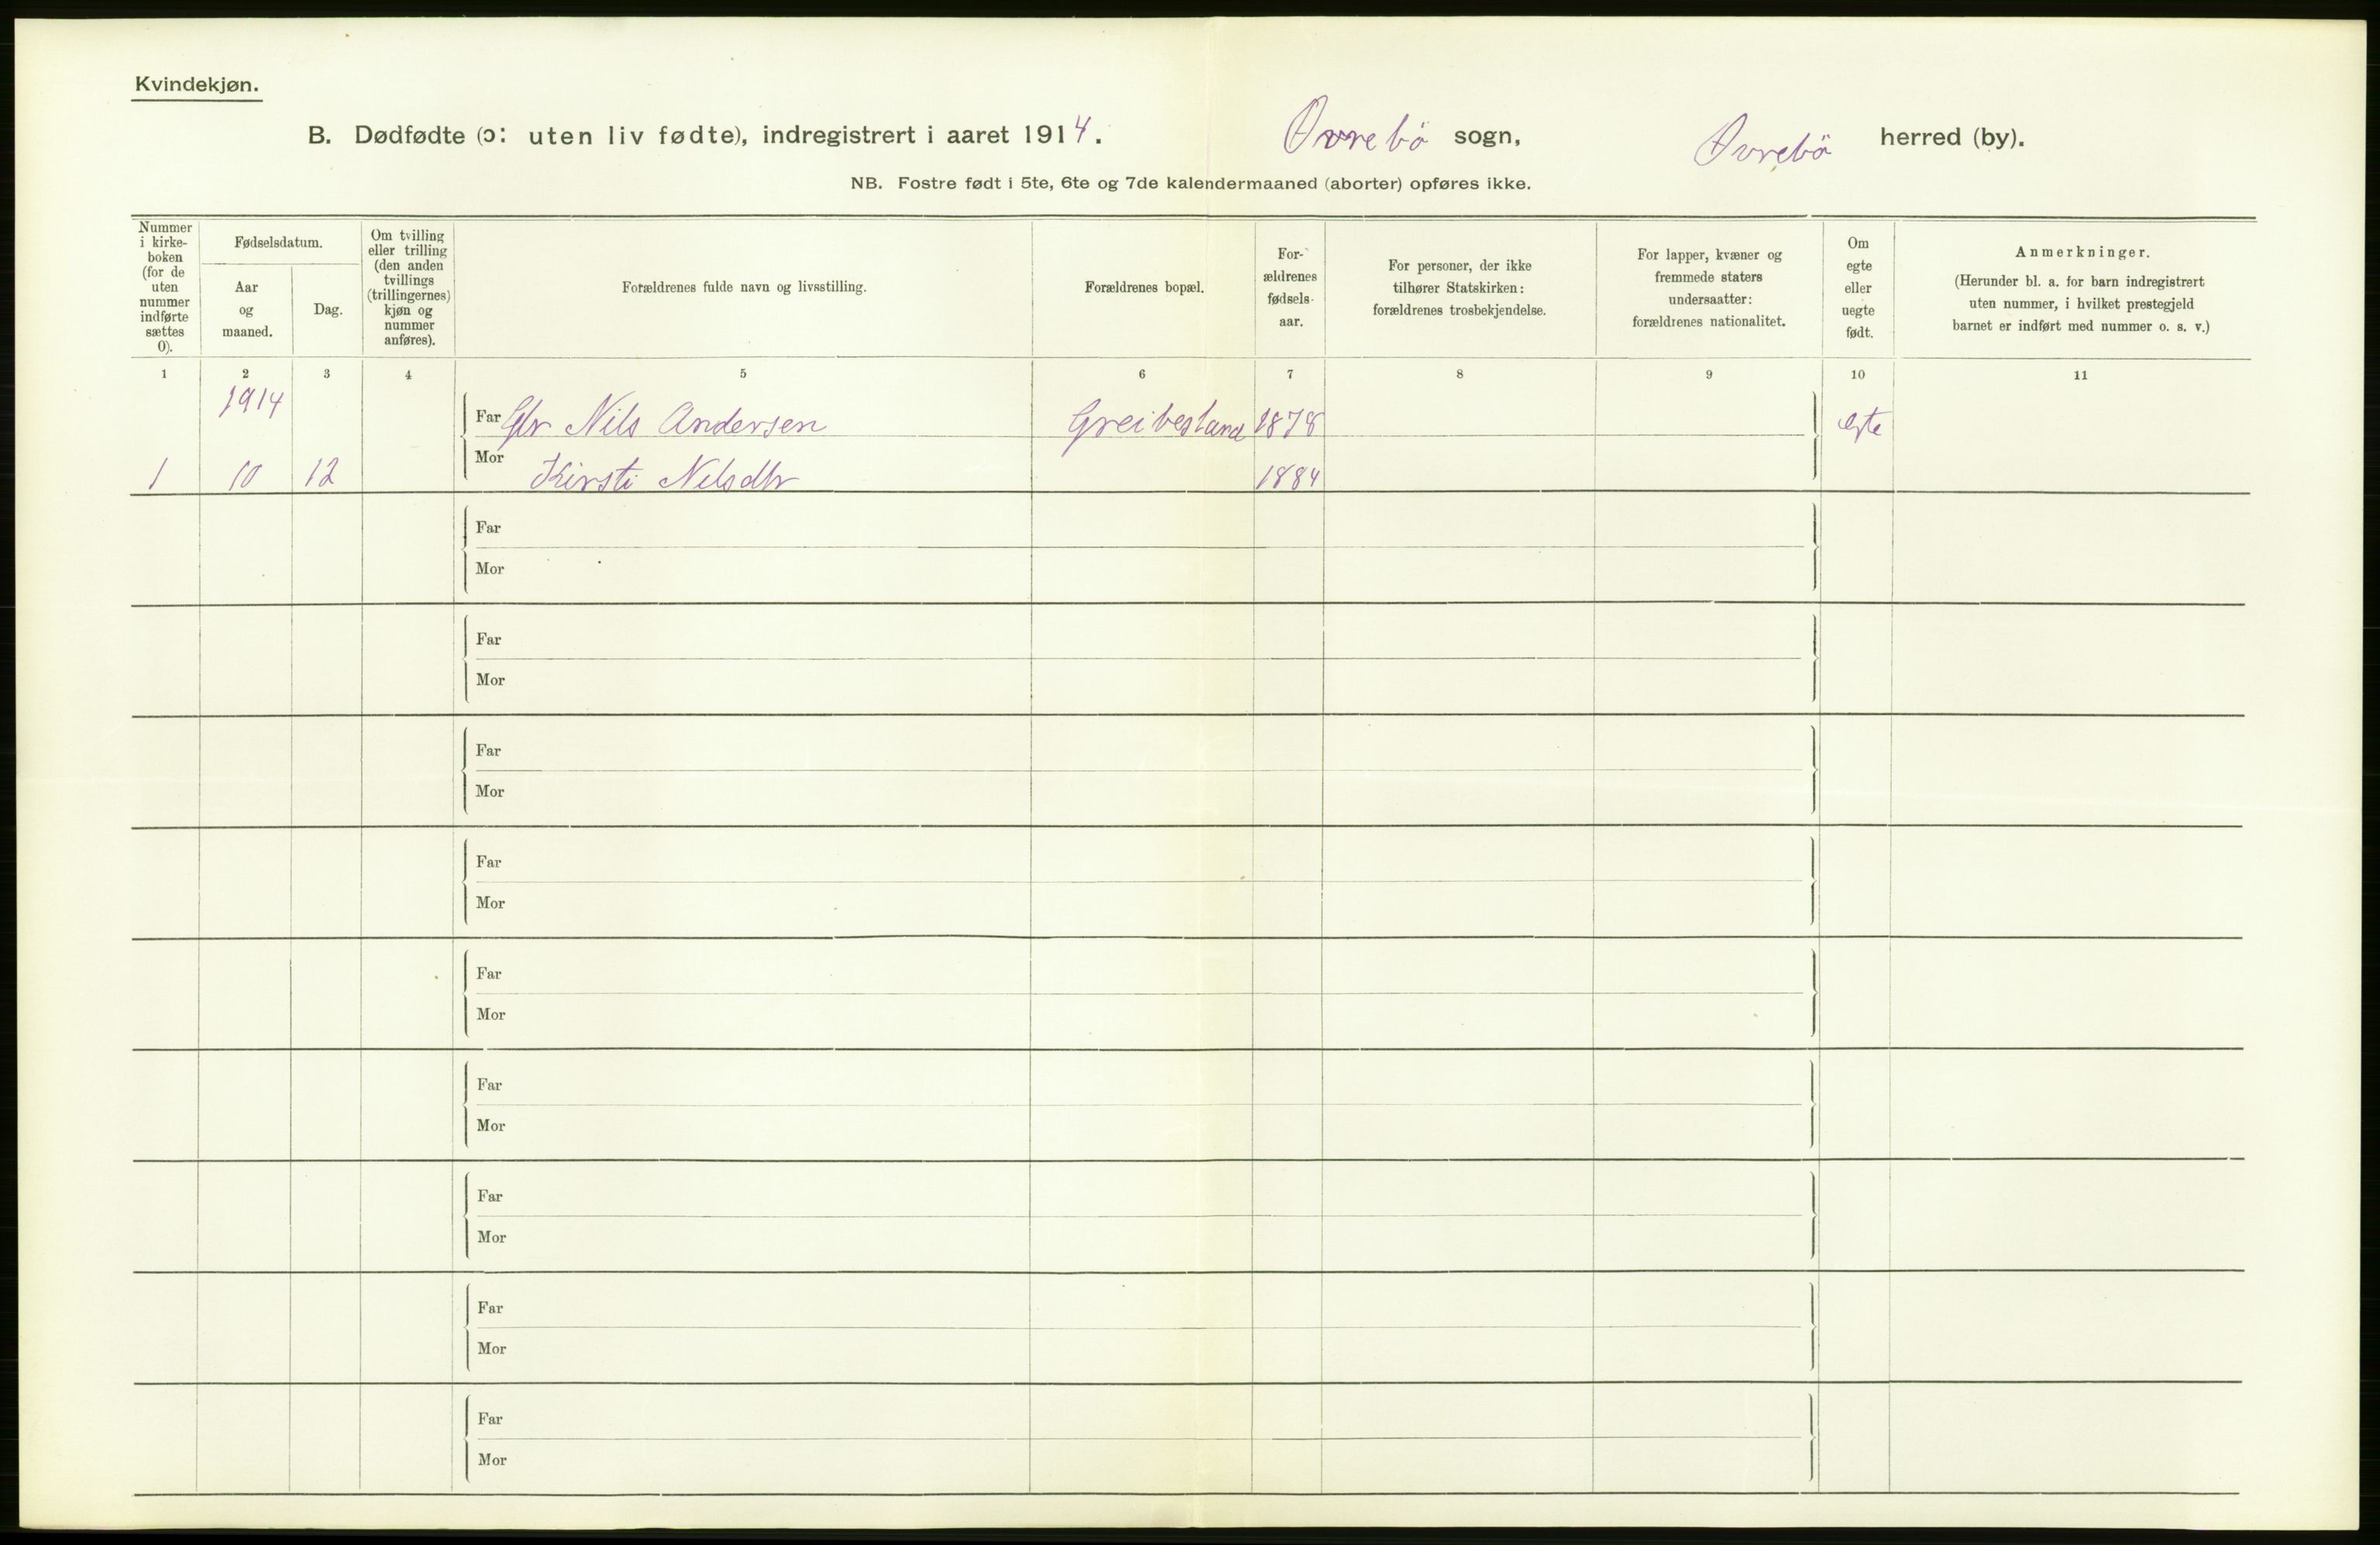 Kvindekjøn.
B. Dødfødte (ɔ: uten liv fødte), indregistrert i aaret 1914. Øvrebö sogn, Øvrebö herred (by).
NB. Fostre født i 5te, 6te og 7de kalendermaaned (aborter) opføres ikke.
Nummer
i kirke-
boken
(for de
uten
nummer
indførte
sættes
0).
Fødselsdatum.
Aar
og
maaned.
Dag.
Om tvilling
eller trilling
(den anden
tvillings
(trillingernes)
kjøn og
nummer
anføres).
Forældrenes fulde navn og livsstilling.
Forældrenes bopæl.
For-
ældrenes
fødsels-
aar.
For personer, der ikke
tilhører Statskirken:
forældrenes trosbekjendelse.
For lapper, kvæner og
fremmede staters
undersaatter:
forældrenes nationalitet.
Om
egte
eller
uegte
født.
Anmerkninger.
(Herunder bl. a. for barn indregistrert
uten nummer, i hvilket prestegjeld
barnet er indført med nummer o. s. v.)
1 2 3 4 5 6 7 8 9 10 11
1914
Far Gbr Nils Andersen Greibesland 1878 egte
1 10 12 Mor Kirsti Nilsdtr 1884
Far
Mor
Far
Mor
Far
Mor
Far
Mor
Far
Mor
Far
Mor
Far
Mor
Far
Mor
Far
Mor